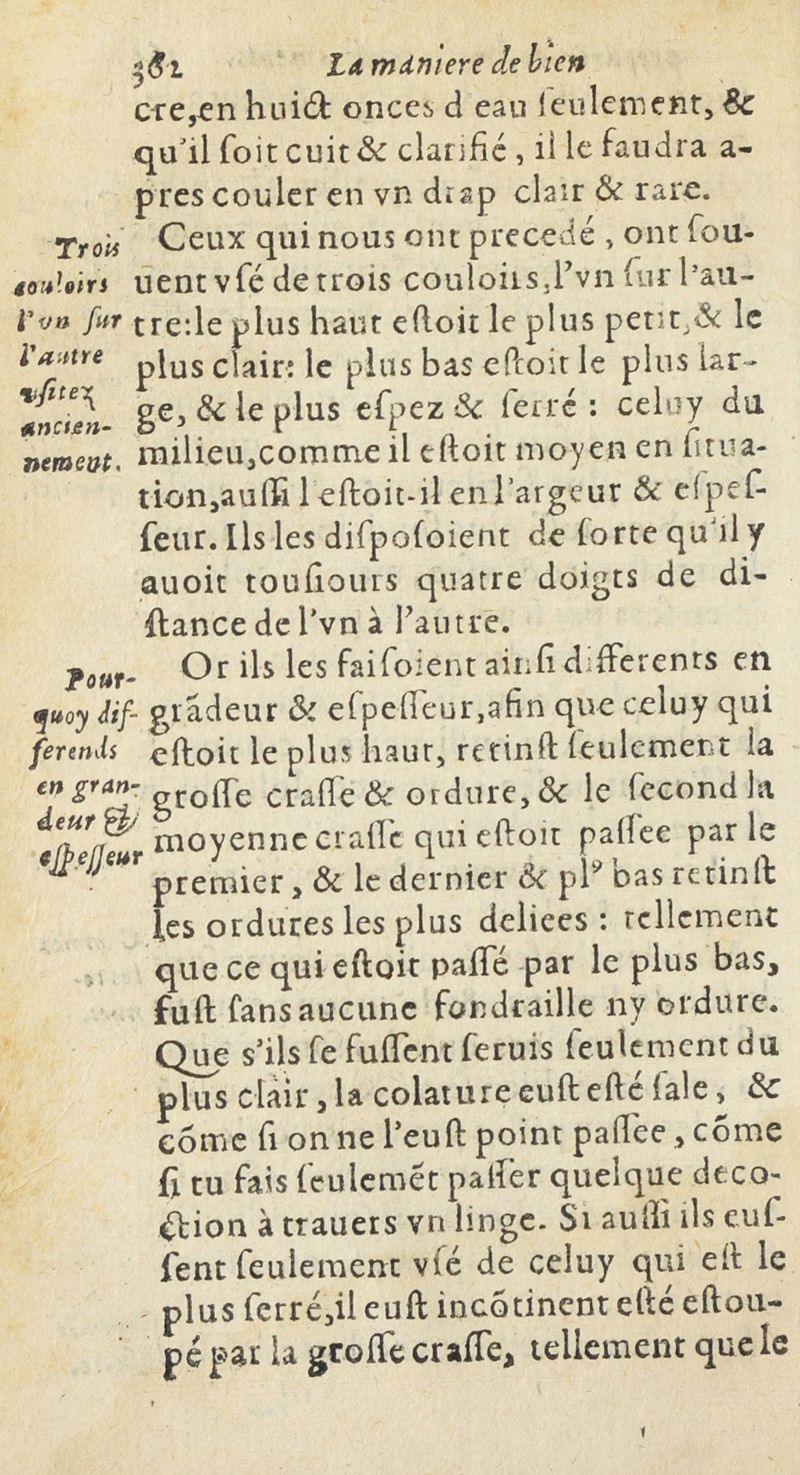 382 La maniere de bien
cre,en huict onces d'eau ſeulement, &
qu'il ſoit cuit & clarifié, il le faudra a-
pres couler en vn drap clair & rare.
Trois
couloirs
l'vn ſur
l'autre
vſitez
ancien-
nement.
Ceux qui nous ont precedé, ont ſou-
uent vſé de trois couloirs, l'vn ſur l'au-
tre: le plus haut eſtoit le plus petit, & le
plus clair: le plus bas eſtoit le plus lar-
ge, & le plus eſpez & ſerré : celuy du
milieu, comme il eſtoit moyen en ſitua-
tion, auſſi l'eſtoit-il en l'argeur & eſpeſ-
ſeur. Ils les diſpoſoient de ſorte qu'il y
auoit touſiours quatre doigts de di-
ſtance de l'vn à l'autre.
Pour-
quoy dif-
ferends
en gran-
deur &
eſpeſſeur
Or ils les faiſoient ainſi differents en
grãdeur & eſpeſſeur, afin que celuy qui
eſtoit le plus haut, retinſt ſeulement la
groſſe craſſe & ordure, & le ſecond la
moyenne craſſe qui eſtoit paſſee par le
premier, & le dernier & plꝰ bas retinſt
les ordures les plus deliees : tellement
que ce qui eſtoit paſſé par le plus bas,
fuſt ſans aucune fondraille ny ordure.
Que s'ils ſe fuſſent ſeruis ſeulement du
plus clair, la colature euſt eſté ſale, &
cõme ſi on ne l'euſt point paſſee, cõme
ſi tu fais ſeulemẽt paſſer quelque deco-
ction à trauers vn linge. Si auſſi ils euſ-
ſent ſeulement vſé de celuy qui eſt le
plus ſerré, il euſt incõtinent eſté eſtou-
pé par la groſſe craſſe, tellement que le